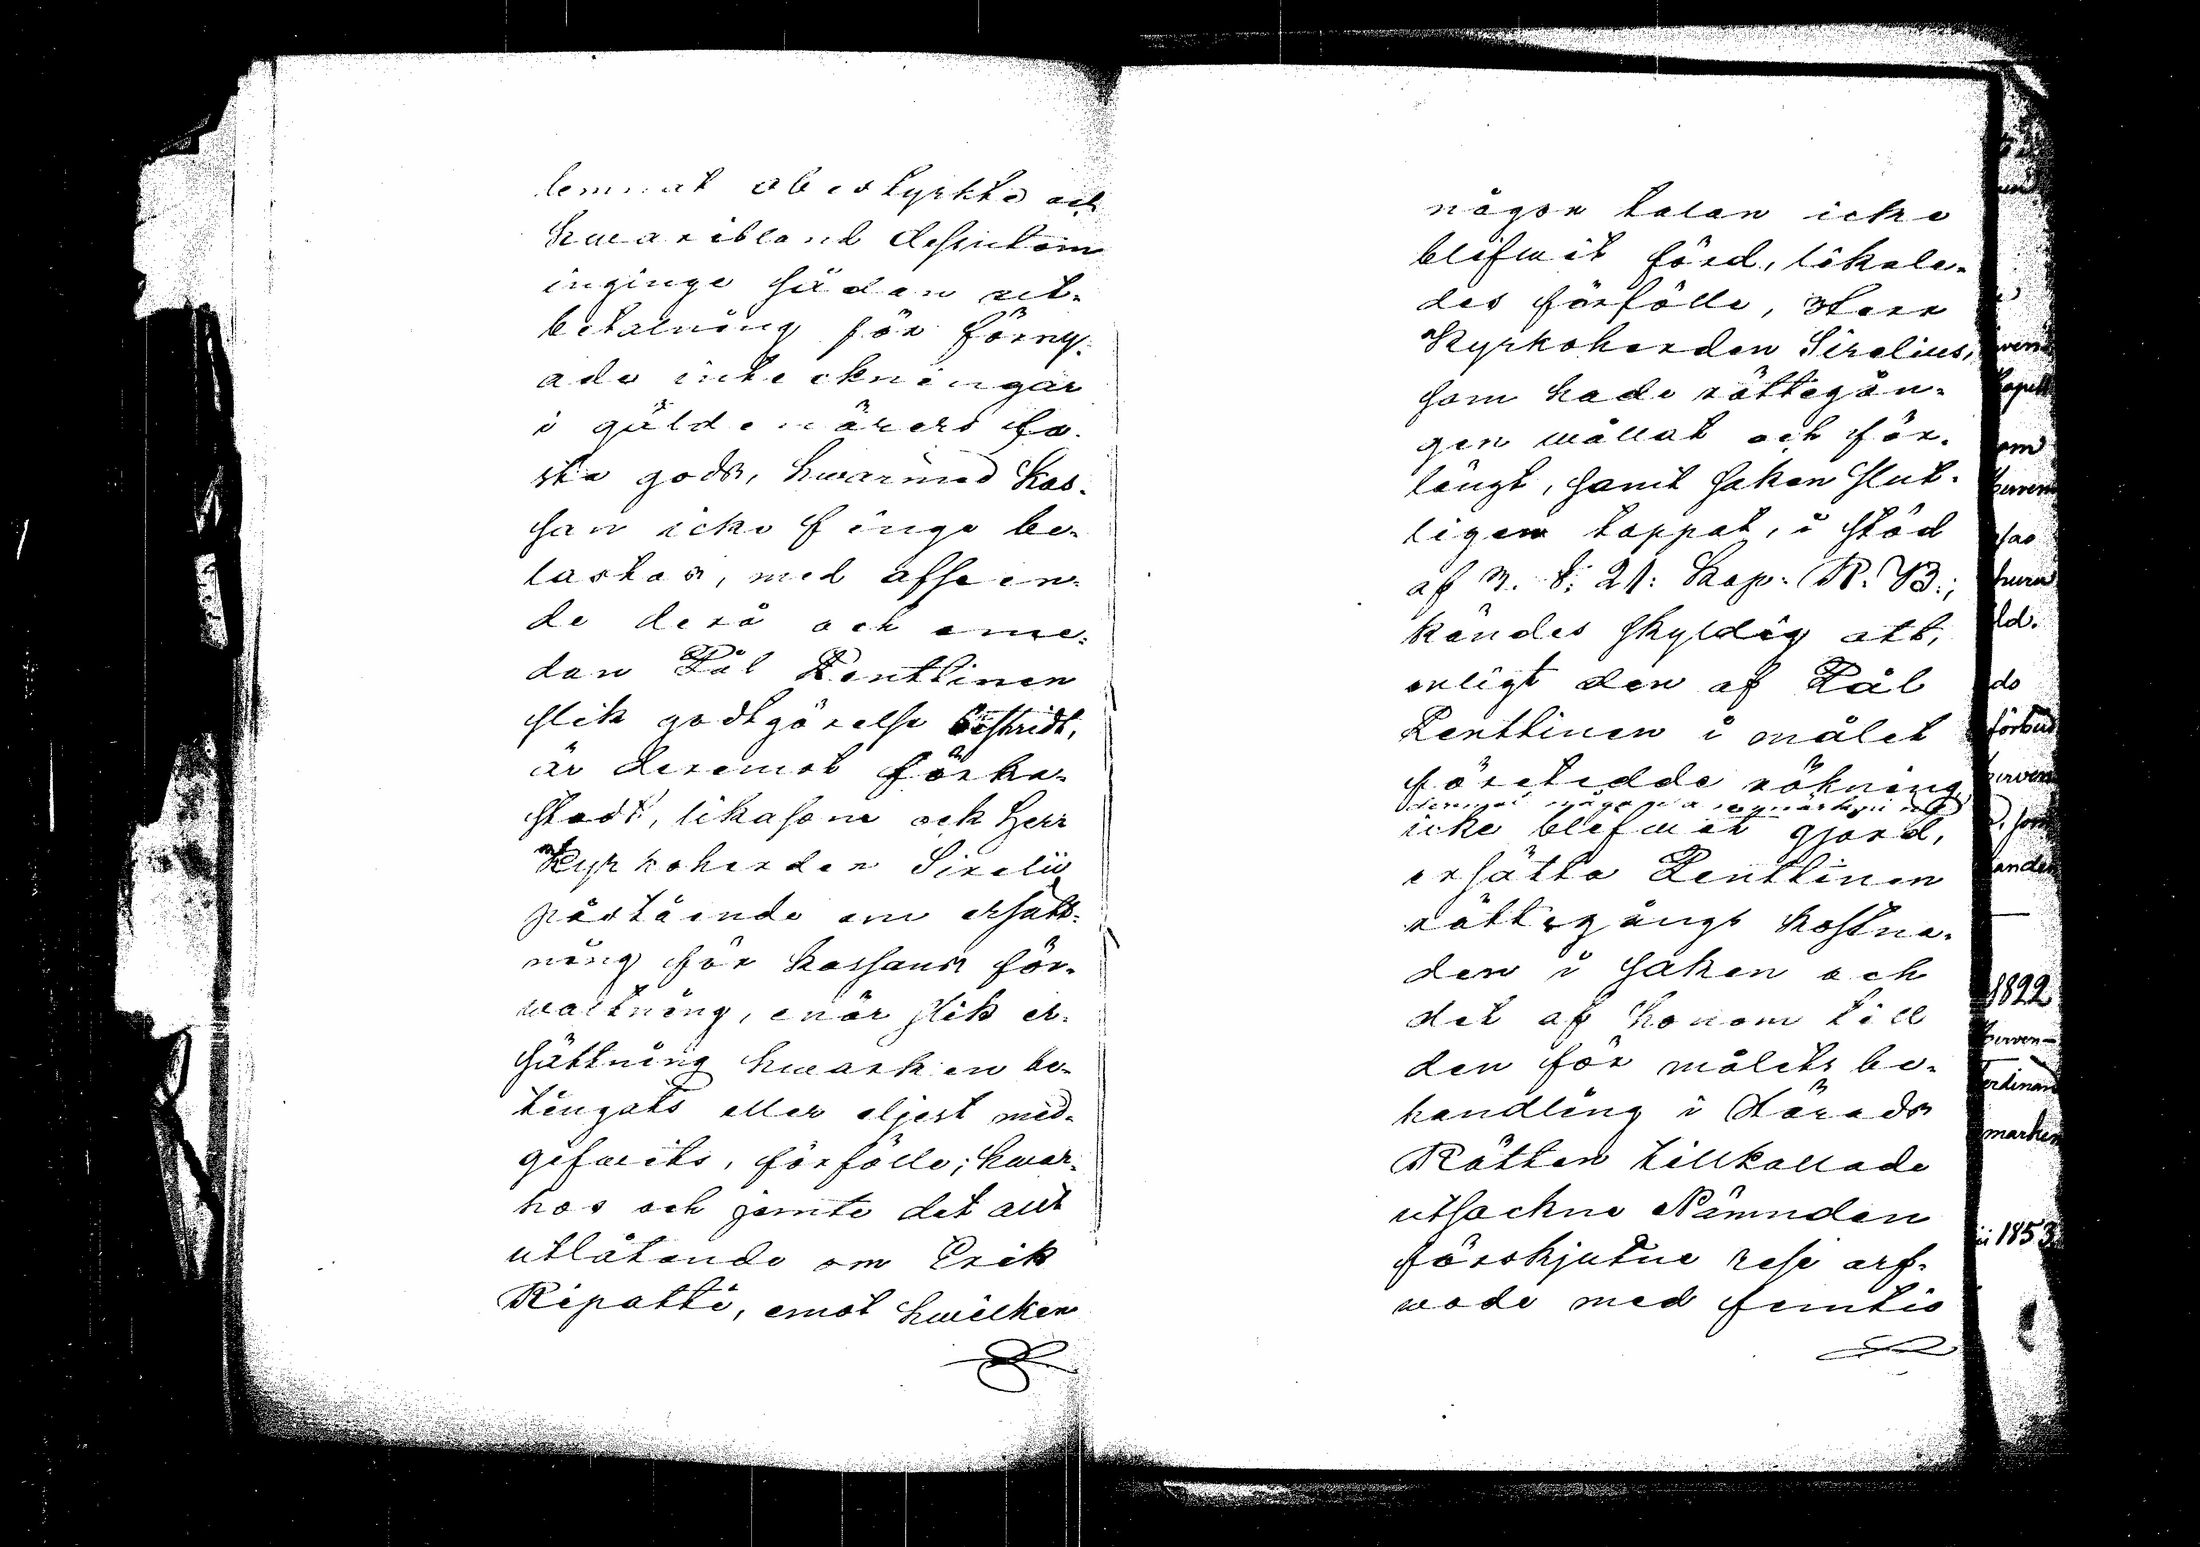 lemnat obestyrkta och
hwaribland dessutom
inginge sådan ut-
betalning för förny-
ade inteckningar
i gäldenärers fa-
sta gods, hwarmed Kas-
san icke finge be-
lastas, med afseen-
de derå och eme-
dan Pål Penttinen
slik godtgörelse bestridt,
är deremot förka-
stadt, likasom ock Herr
Kyrkoherden Sirelii
påstående om ersätt-
ning för Kassans för-
waltning, enär slik er-
sättning hwarken be-
tingats eller eljest med-
gifwits, förfölle; hwar-
hos och jemte det allt
utlåtande om Erik
Ripatti, emot hwilken
någon talan icke
blifwit förd, likale-
des förfölle, Herr
Kyrkoherden Sirelius,
som hade rättegån-
gen wållat och för-
längt, samt saken slut-
ligen tappat, i stöd
af 3. §: 21: Kap. R. B.;
kändes skyldig att,
enligt den af Pål
Penttinen i målet
företedde räkning
deremot någon anmärkning
icke blifwit gjord,
ersätta Penttinen
rättegångs kostna-
den i saken och
det af honom till
den för målets be-
handling i Härads
Rätten tillkallade
utsockne Nämnden
förskjutne rese arf-
wode med femtio
1822
ii 1853